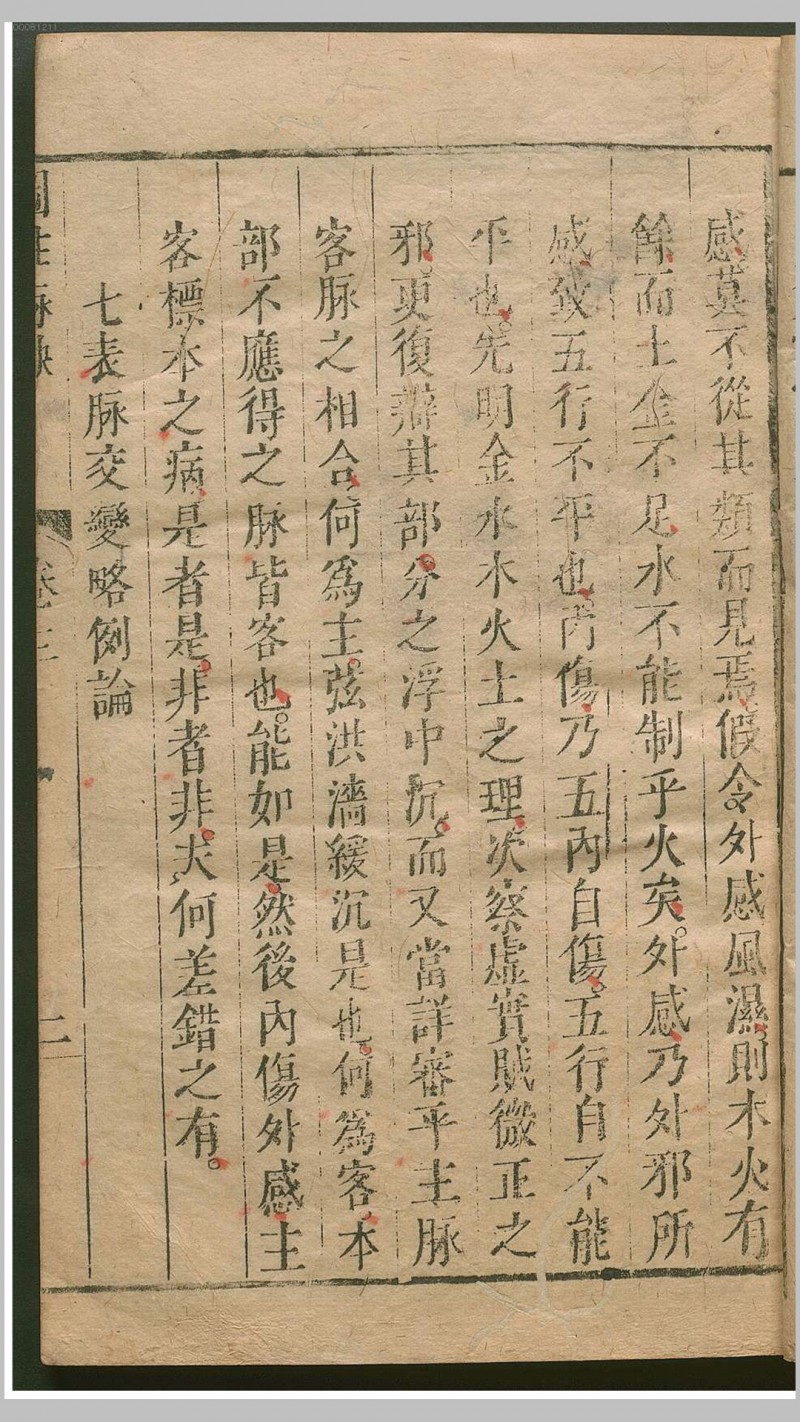 00081211
感莫不從其類而見焉假令外感風濕則木火有
餘而土金不足水不能制乎火矣。外感乃外邪所
感致五行不平也。內傷乃五內自傷。五行自不能
平也。先明金水木火土之理。次察虛實賊微正之
邪。更復辯其部分之浮中沉。而又當詳審平主脉
客脉之相合。何爲主。弦洪濇緩沉是也。何爲客。本
部不應得之脉皆客也。能如是。然後內傷外感主
客標本之病。是者是。非者非。夫何差錯之有。
七表脉交變略例論
圖註脉訣 卷之二 二